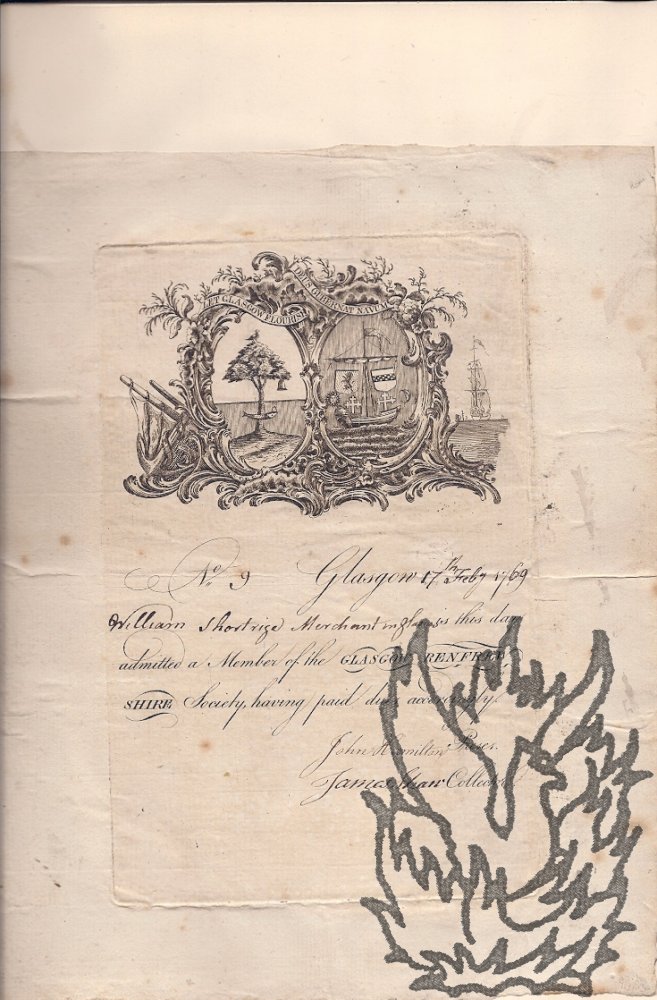 LET GLASGOW FLOURISH
DEUS GUBERNAT NAVEM
No. 9 Glasgow 17th Feby 1769
William Shortrige Merchant in Glasgow is this day
admitted a Member of the GLASGOW RENFREW
SHIRE Society, having paid dues accordingly.
John Hamilton Preses.
James Shaw Collector